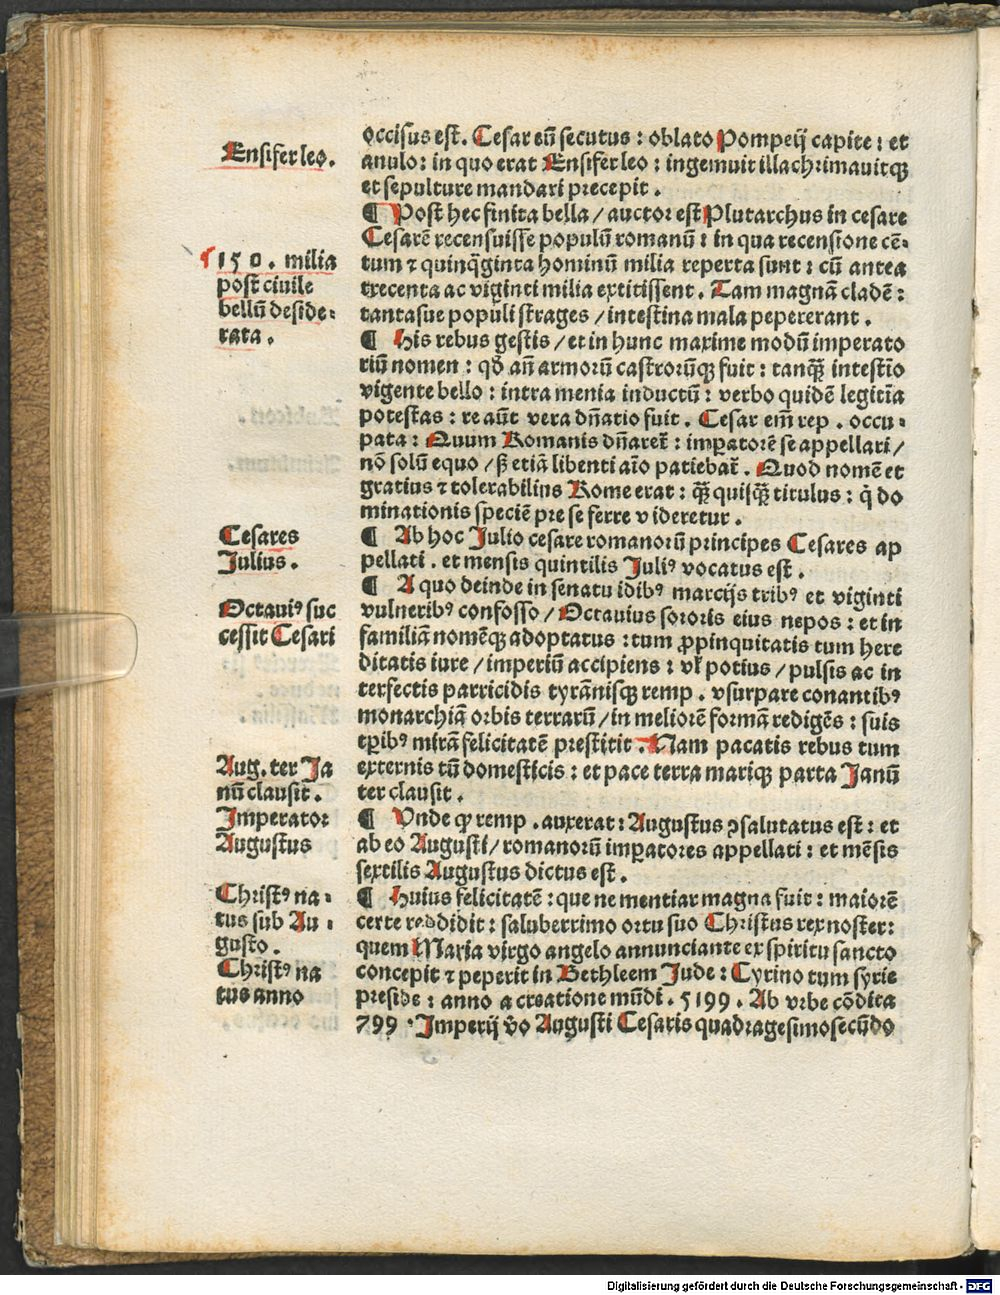 occisus est. Cesar eū secutus : oblato Pompeij capite : et
Ensifer leo.
anulo : in quo erat Ensifer leo : ingemuit illachrimauitqꝫ
et sepulture mandari precepit .
¶ Post hec finita bella / auctor est Plutarchus in cesare
Cesarē recensuisse populū romanū : in qua recensione cē-
150 . milia
post ciuile
bellū deside-
rata .
tum ⁊ quinq̄ginta hominū milia reperta sunt : cū antea
trecenta ac viginti milia extitissent . Tam magnā cladē :
tantasue populi strages / intestina mala pepererant .
¶ His rebus gestis / et in hunc maxime modū imperato
riū nomen : qđ añ armorū castrorūqꝫ fuit : tanqꝫ̄ intestīo
vigente bello : intra menia inductū : verbo quidē legitīa
potestas : re aūt vera dñatio fuit . Cesar em̄ rep . occu-
pata : Quum Romanis dñaret̄ : imꝑatorē se appellari /
nō solū equo / sꝫ etiā libenti aīo patiebat̄ . Quod nomē et
gratius ⁊ tolerabilius Rome erat : qꝫ̄ quisqꝫ̄ titulus : q̇ do
minationis speciē pre se ferre videretur .
Cesares
Julius .
¶ Ab hoc Julio cesare romanorū principes Cesares ap
pellati . et mensis quintilis Juliꝰ vocatus est .
¶ A quo deinde in senatu idibꝰ marcijs tribꝰ et viginti
Octauiꝰ suc
cessit Cesari
vulneribꝰ confosso / Octauius sororis eius nepos : et in
familiā nomēqꝫ adoptatus : tum ꝓpinquitatis tum here
ditatis iure / imperiū accipiens : vl̄ potius / pulsis ac in
terfectis parricidis tyrānisqꝫ remp . vsurpare conantibꝰ
monarchiā orbis terrarū / in meliorē formā redigēs : suis
tꝑibꝰ mirā felicitatē prestitit . Nam pacatis rebus tum
Aug. ter Ja
nū clausit .
externis tū domesticis : et pace terra mariqꝫ parta Janū
ter clausit .
Imperator
Augustus
¶ Vnde qꝛ remp . auxerat : Augustus ꝯsalutatus est : et
ab eo Augusti / romanorū imꝑatores appellati : et mēsis
sextilis Augustus dictus est .
Christꝰ na-
tus sub Au-
gusto .
¶ Huius felicitatē : que ne mentiar magna fuit : maiorē
certe reddidit : saluberrimo ortu suo Christus rex noster :
quem Maria virgo angelo annunciante ex spiritu sancto
Christꝰ na
tus anno
concepit ⁊ peperit in Bethleem Jude : Cyrino tum syrie
preside : anno a creatione mūdi . 5199 . Ab vrbe cōdita
799 . Imperij v̄o Augusti Cesaris quadragesimosecūdo
Digitalisierung gefördert durch die Deutsche Forschungsgemeinschaft - DFG